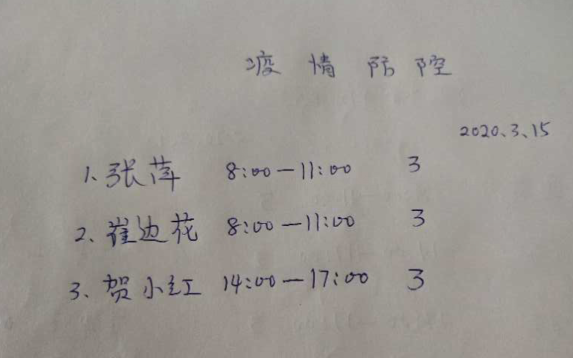 疫情防控
2020.3.15
1、张萍 8:00—11:00 3
2、崔边花 8:00—11:00 3
3、贺小红 14:00—17:00 3